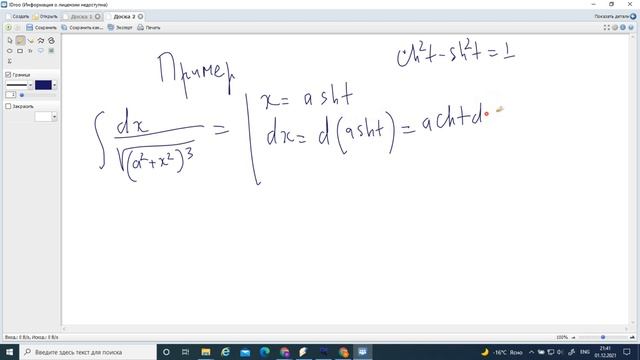 IDroo (Информация о лицензии недоступна)
Создать Открыть Доска 1 Доска 2 Показать детали
Сохранить Сохранить как... Экспорт Печать
Граница
Закрасить
Пример
ch²t - sh²t = 1
∫ dx / √(a²+x²)³ =
x = a sht
dx = d(a sht) = a cht d
100%
Введите здесь текст для поиска
-16°C Ясно
ENG
21:41
01.12.2021